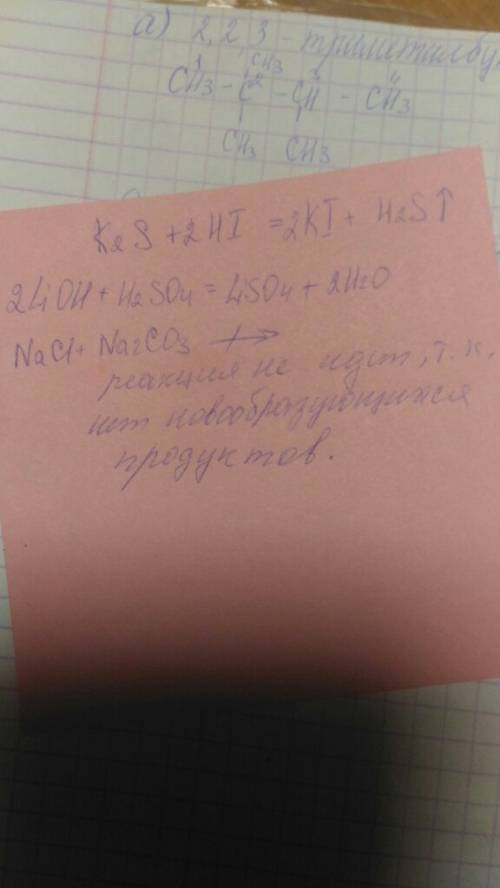 а) 2,2,3 - триметилбу
CH3
CH3 - C - CH - CH3
1 2 3 4
CH3 CH3
K2S + 2HI = 2KI + H2S↑
2LiOH + H2SO4 = LiSO4 + 2H2O
NaCl + Na2CO3 ↛
реакция не идёт, т.к.
нет новообразующихся
продуктов.